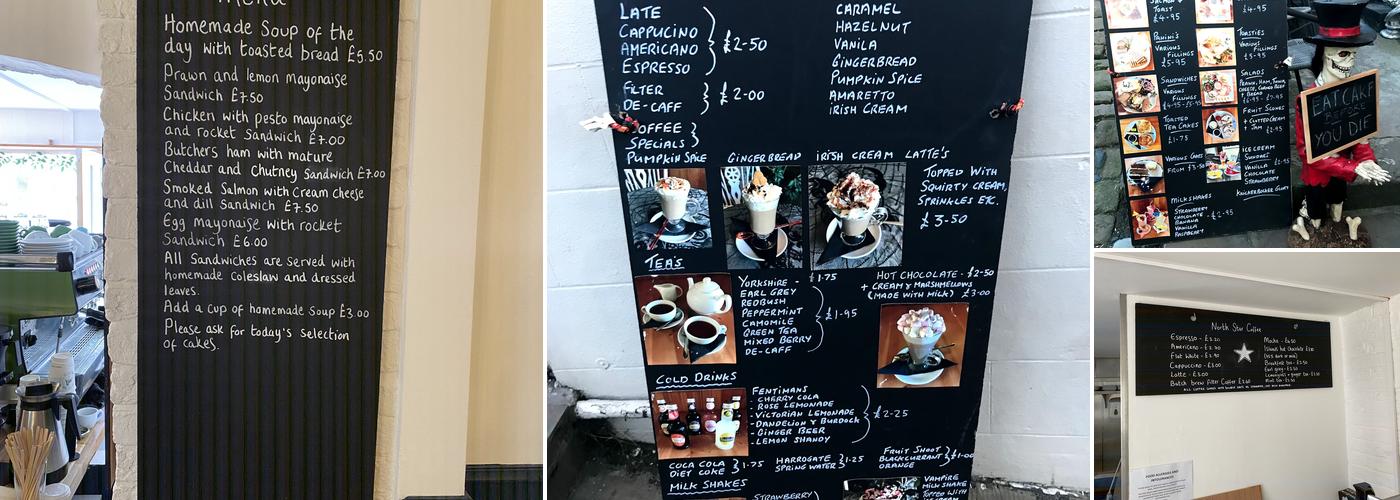 Menu
Homemade Soup of the
day with toasted bread £5.50
Prawn and lemon mayonaise
Sandwich £7.50
Chicken with pesto mayonaise
and rocket Sandwich £7.00
Butchers ham with mature
Cheddar and Chutney Sandwich £7.00
Smoked Salmon with Cream cheese
and dill Sandwich £7.50
Egg mayonaise with rocket
Sandwich £6.00
All Sandwiches are served with
homemade coleslaw and dressed
leaves.
Add a cup of homemade Soup £3.00
Please ask for today's selection
of cakes.
LATE
CAPPUCINO
AMERICANO
ESPRESSO
£2-50
FILTER
DE-CAFF
£2-00
CARAMEL
HAZELNUT
VANILA
GINGERBREAD
PUMPKIN SPICE
AMARETTO
IRISH CREAM
COFFEE
SPECIALS
PUMPKIN SPICE GINGERBREAD IRISH CREAM LATTE'S
TOPPED WITH
SQUIRTY CREAM,
SPRINKLES ETC.
£3-50
TEA'S
YORKSHIRE - £1-75
EARL GREY
REDBUSH
PEPPERMINT
CAMOMILE
GREEN TEA
MIXED BERRY
DE-CAFF
£1-95
HOT CHOCOLATE - £2-50
+ CREAM & MARSHMELLOWS
(MADE WITH MILK) £3-00
COLD DRINKS
FENTIMANS
- CHERRY COLA
- ROSE LEMONADE
- VICTORIAN LEMONADE
- DANDELION & BURDOCK
- GINGER BEER
- LEMON SHANDY
£2-25
COCA COLA
DIET COKE
£1-75
HARROGATE
SPRING WATER
£1.25
FRUIT SHOOT
BLACKCURRANT
ORANGE
£1-00
MILK SHAKES
STRAWBERRY
VAMPIRE
MILK SHAKE
TOPPED WITH
TOAST
£4-95
£4-95
PANINI'S
VARIOUS
FILLINGS
£5-95
TOASTIES
VARIOUS
FILLINGS
£5-95
SANDWICHES
VARIOUS
FILLINGS
SALADS
TOASTED
TEA CAKES
£1-75
FRUIT SCONES
+ CLOTTED CREAM
+ JAM £2-95
VARIOUS CAKES
FROM £3-50
ICE CREAM
SUNDAES
VANILLA
CHOCOLATE
STRAWBERRY
KNICKERBOCKER GLORY
MILKSHAKES
STRAWBERRY
CHOCOLATE
BANANA
VANILLA
RASPBERRY
£2-95
EAT CAKE
BEFORE
YOU DIE
North Star Coffee
Espresso - £2.20
Americano - £2.70
Flat White - £2.90
Cappuccino - £3.00
Latte - £3.00
Batch brew Filter Coffee
Mocha
FOOD ALLERGIES AND
INTOLERANCES